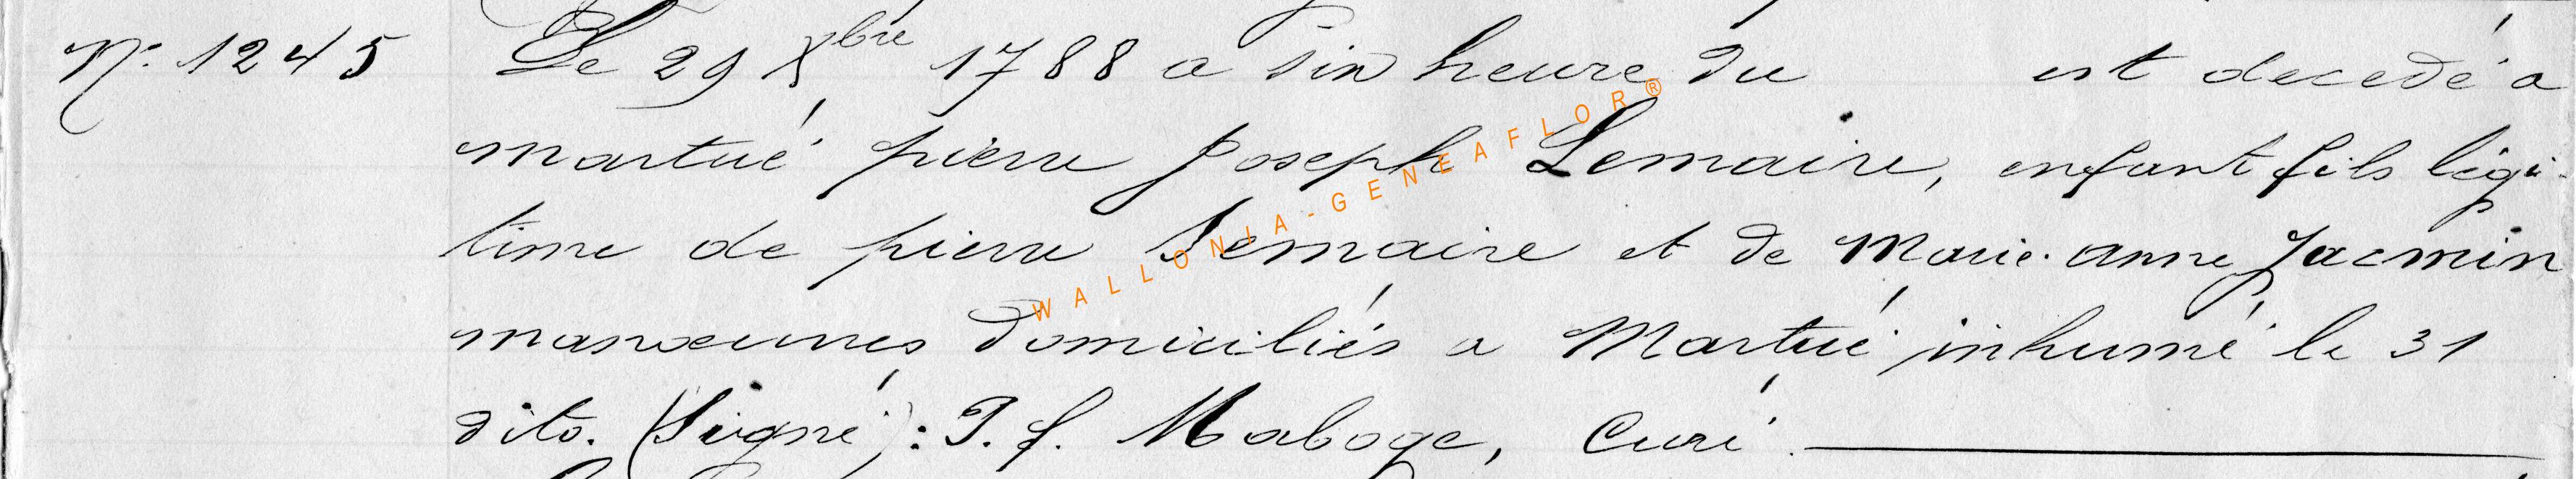 N° 1245 Le 29 Xbre 1788 a six heure du est decedé a
martué pierre joseph Lemaire, enfant fils légi-
time de pierre Lemaire et de Marie-anne Jacmin
manoeuvres domiciliés a Martué inhumé le 31
dito. (Signé): J. f. Maboge, Curé.
WALLONIA-GENEAFLOR®